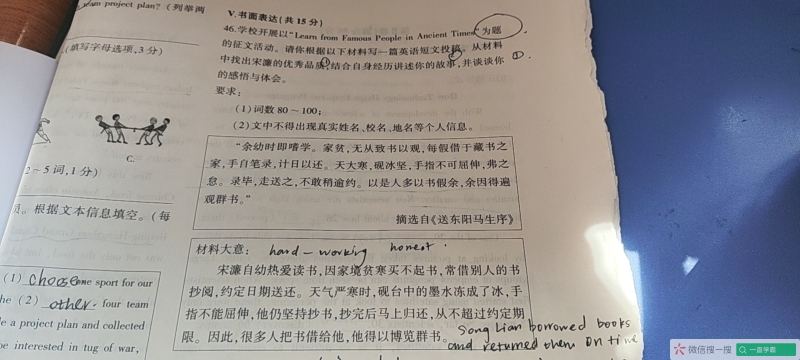 team project plan? (列举两
(填写字母选项,3分)
C.
2~5词,1分)
根据文本信息填空。(每
(1) choose one sport for our
he (2) other. four team
e a project plan and collected
be interested in tug of war,
V.书面表达(共15分)
46.学校开展以“Learn from Famous People in Ancient Times”为题
的征文活动。请你根据以下材料写一篇英语短文投稿。从材料
中找出宋濂的优秀品质,结合自身经历讲述你的故事,并谈谈你
的感悟与体会。
①
②
①
要求:
(1)词数80~100;
(2)文中不得出现真实姓名、校名、地名等个人信息。
“余幼时即嗜学。家贫,无从致书以观,每假借于藏书之
家,手自笔录,计日以还。天大寒,砚冰坚,手指不可屈伸,弗之
怠。录毕,走送之,不敢稍逾约。以是人多以书假余,余因得遍
观群书。”
摘选自《送东阳马生序》
材料大意: hard-working honest.
宋濂自幼热爱读书,因家境贫寒买不起书,常借别人的书
抄阅,约定日期送还。天气严寒时,砚台中的墨水冻成了冰,手
指不能屈伸,他仍坚持抄书,抄完后马上归还,从不超过约定期
限。因此,很多人把书借给他,他得以博览群书。
Song Lian borrowed books
and returned them on time
微信搜一搜
一壹学霸